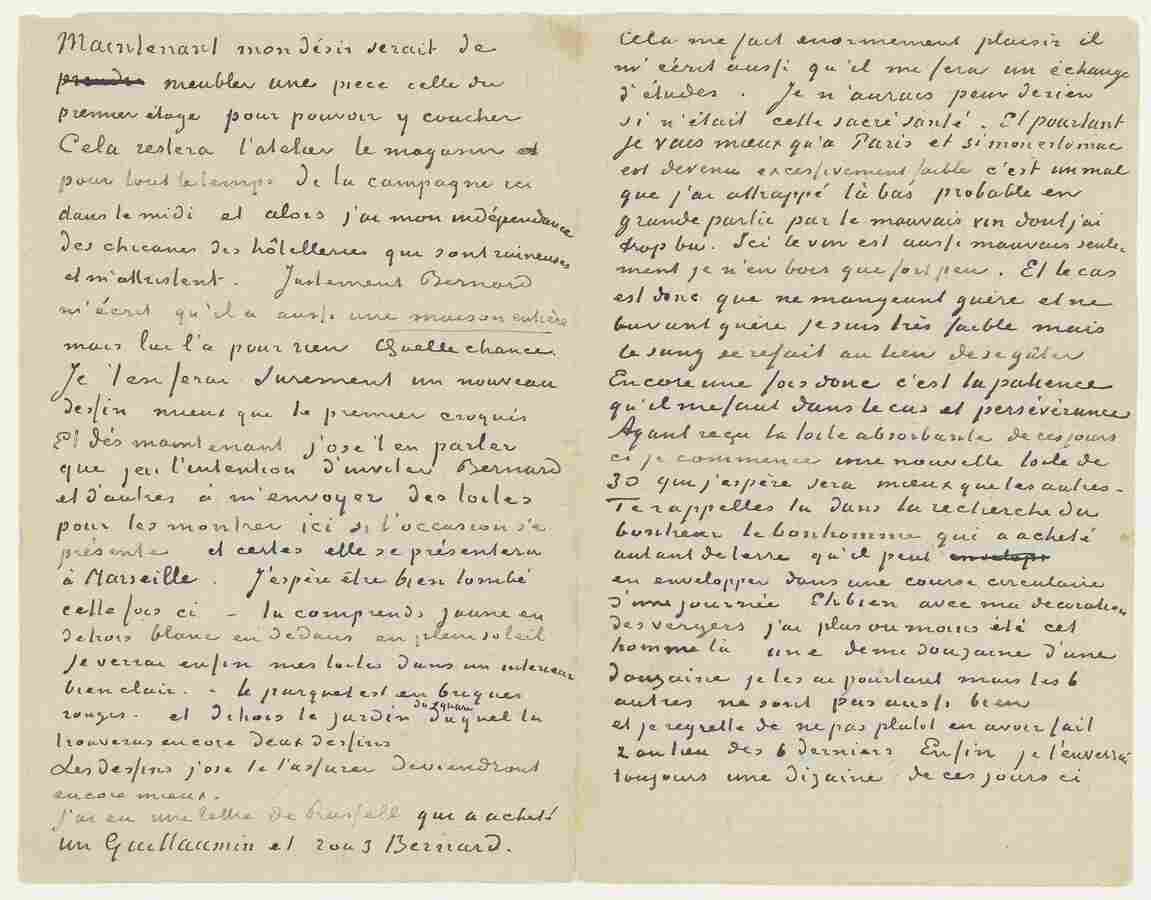 Maintenant mon désir serait de
prendre meubler une piece celle du
premier étage pour pouvoir y coucher
Cela restera l'atelier le magasin et
pour tout le temps de la campagne ici
dans le midi et alors j'ai mon indépendance
des chicanes des hôtelleries qui sont ruineuses
et m'attristent. Justement Bernard
m'écrit qu'il a aussi une maison entière
mais lui l'a pour rien Quelle chance.
Je t'en ferai surement un nouveau
dessin mieux que le premier croquis
Et dès maintenant j'ose t'en parler
que j'ai l'intention d'inviter Bernard
et d'autres à m'envoyer des toiles
pour les montrer ici si l'occasion s'en
présente et certes elle se présentera
à Marseille. J'espère être bien tombé
cette fois ci – tu comprends jaune en
dehors blanc en dedans en plein soleil
je verrai enfin mes toiles dans un interieur
bien clair. – le parquet est en briques
rouges. et dehors le jardin du square duquel tu
trouveras encore deux dessins
Les dessins j'ose te l'assurer deviendront
encore mieux.
J'ai eu une lettre de Russell qui a acheté
un Guillaumin et 2 ou 3 Bernard.
Cela me fait enormement plaisir il
m'écrit aussi qu'il me fera un échange
d'études. Je n'aurais peur de rien
si n'était cette sacré santé. Et pourtant
je vais mieux qu'à Paris et si mon estomac
est devenu excessivement faible c'est un mal
que j'ai attrappé là bas probable en
grande partie par le mauvais vin dont j'ai
trop bu. Ici le vin est aussi mauvais seule-
ment je n'en bois que fort peu. Et le cas
est donc que ne mangeant guère et ne
buvant guère je suis très faible mais
le sang se refait au lieu de se gâter
Encore une fois donc c'est la patience
qu'il me faut dans le cas et persévérance
Ayant reçu la toile absorbante de ces jours
ci je commence une nouvelle toile de
30 qui j'espère sera mieux que les autres –
Te rappelles tu dans la recherche du
bonheur le bonhomme qui a acheté
autant de terre qu'il peut envelopr
en envelopper dans une course circulaire
d'une journée Eh bien avec ma decoration
des vergers j'ai plus ou moins été cet
homme là une demi douzaine d'une
douzaine je les ai pourtant mais les 6
autres ne sont pas aussi bien
et je regrette de ne pas plutot en avoir fait
2 au lieu des 6 derniers Enfin je t'enverrai
toujours une dizaine de ces jours ci